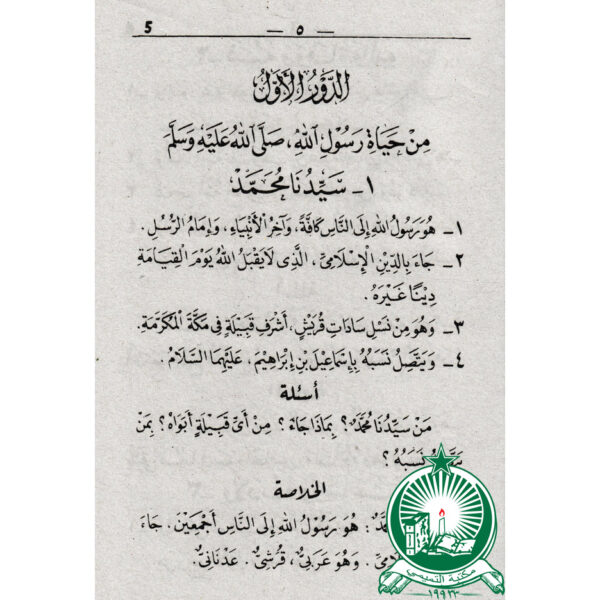 5 — ٥ —
الدَّوْرُ الْأَوَّلُ
مِنْ حَيَاةِ رَسُوْلِ اللهِ، صَلَّى اللهُ عَلَيْهِ وَسَلَّمَ
١ـ سَيِّدُنَا مُحَمَّدٌ
١ـ هُوَ رَسُوْلُ اللهِ إِلَى النَّاسِ كَافَّةً، وَآخِرُ الْأَنْبِيَاءِ، وَإِمَامُ الرُّسُلِ.
٢ـ جَاءَ بِالدِّيْنِ الْإِسْلَامِيِّ، الَّذِى لَا يَقْبَلُ اللهُ يَوْمَ الْقِيَامَةِ
دِيْنًا غَيْرَهُ.
٣ـ وَهُوَ مِنْ نَسْلِ سَادَاتِ قُرَيْشٍ، أَشْرَفِ قَبِيْلَةٍ فِى مَكَّةَ الْمُكَرَّمَةِ.
٤ـ وَيَتَّصِلُ نَسَبُهُ بِإِسْمَاعِيْلَ بْنِ إِبْرَاهِيْمَ، عَلَيْهِمَا السَّلَامُ.
أسئلة
مَنْ سَيِّدُنَا مُحَمَّدٌ؟ بِمَاذَا جَاءَ؟ مِنْ أَيِّ قَبِيْلَةٍ أَبَوَاهُ؟ بِمَنْ
نَسَبُهُ؟
الخلاصة
: هُوَ رَسُوْلُ اللهِ إِلَى النَّاسِ أَجْمَعِيْنَ. جَاءَ
وَهُوَ عَرَبِيٌّ، قُرَشِيٌّ. عَدْنَانِيٌّ.
مكتبة التميمي
١٩٩٣